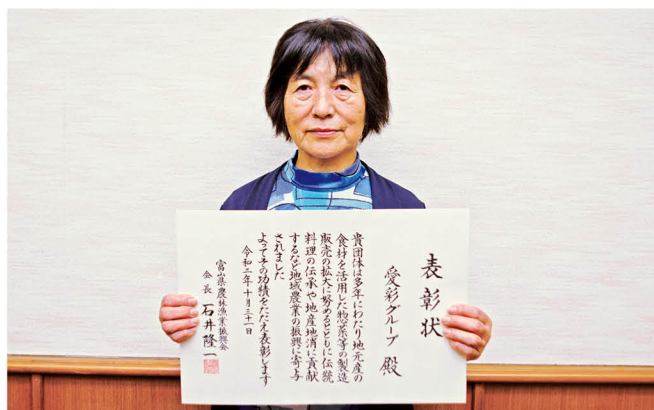 表彰状
愛彩グループ 殿
貴団体は多年にわたり地元産の
食材を活用した惣菜等の製造
販売の拡大に努めるとともに伝統
料理の伝承や地産地消に貢献
するなど地域農業の振興に寄与
されました
よってその功績をたたえ表彰します
令和二年十月三十一日
富山県農林漁業振興会
会長 石井隆一